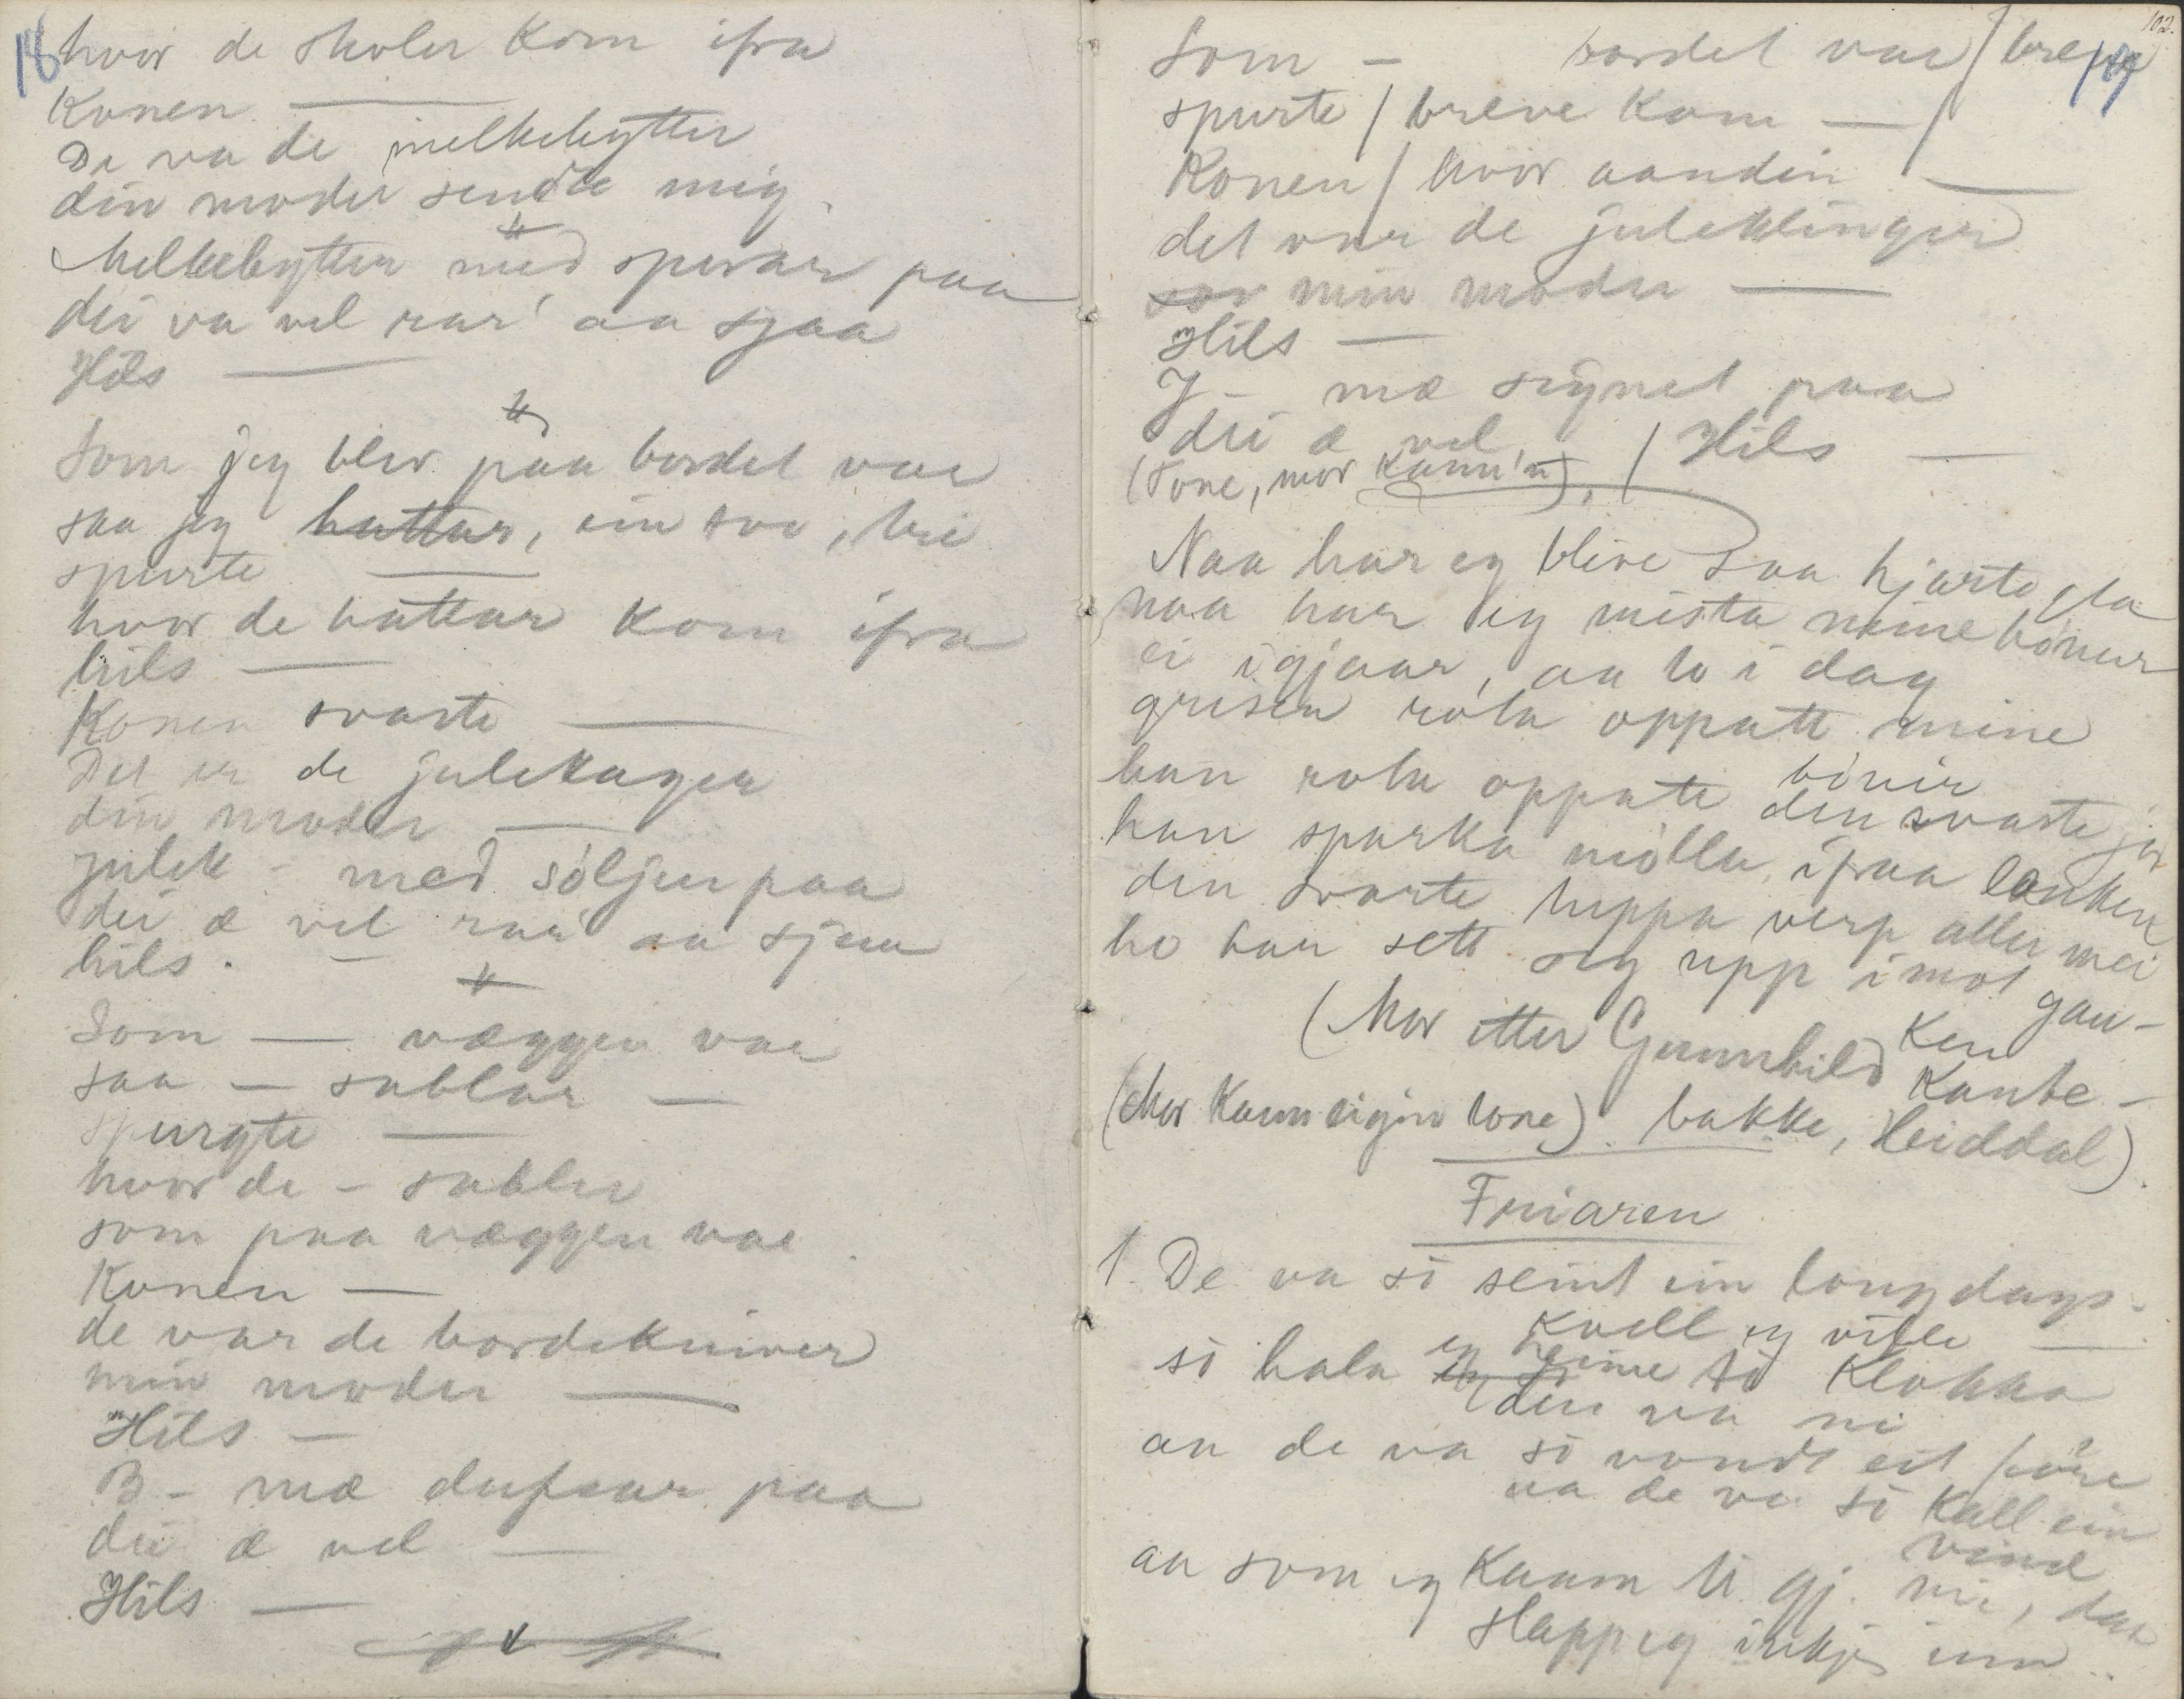 18
hvor de skoler kom ifra
Konen —
De va de melkebytter
din moder sendte mig.
Melkebytter med sporar paa
dei va vel rar' aa sjaa
Hils —
Som jeg blev paa bordet var
saa jeg hattar, ein tvo, tri
spurte —
hvor de hattar kom ifra
hils —
Konen svarte —
Det er de julekager
din moder —
julek - med søljur paa
dei æ vel rar' aa sjaa
hils. —
Som — væggen var
saa — sablar —
spurgte —
hvor de - sabler
som paa væggen var
Konen —
de var de bordekniver
min moder —
Hils —
B - mæ dufsar paa
dei æ vel —
Hils —
102.
19
Som — bordet var / breve
spurte / breve kom — /
Konen / hvor aandin —
det var de juleklinger
min moder —
Hils —
J — mæ signet paa
dei æ vel / Hils —
(Tone, mor kunn'a).
Naa har eg blive saa hjarte gla
naa har eg mista mine bönur
ei igjaar, aa to i dag
grisen rota oppatt mine
bönir
han rota oppatte den svarte jor
han sparka mölla ifraa lonken
den svarte huppa verp aller mei
ho har sett seg upp imot gau-
ken
(Mor etter Gunnhild Kaabe-
bakke, Heiddal).
(Mor kunn eigin tone).
Friaren
1. De va so seint ein laugdags-
kvell eg ville —
so hala eg heime to klokka
den va ni
aa de va so vondt eit före
aa de va so kall ein
vind
aa som eg kaam ti gj. mi, daa
slapp eg inkje inn.